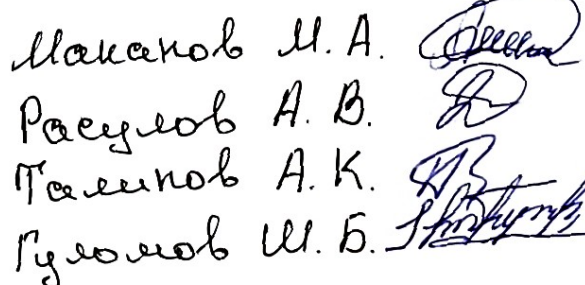 Маканов М. А.
Расулов А. В.
Талипов А. К.
Гуломов Ш. Б.